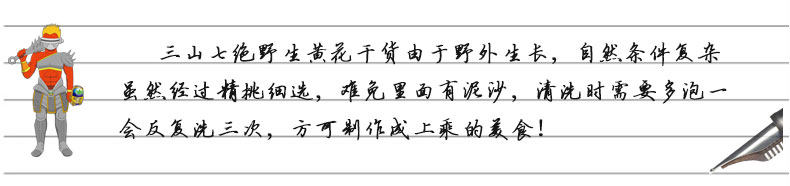 三山七绝野生黄花干货由于野外生长，自然条件复杂
虽然经过精挑细选，难免里面有泥沙，清洗时需要多泡一
会反复洗三次，方可制作成上乘的美食！